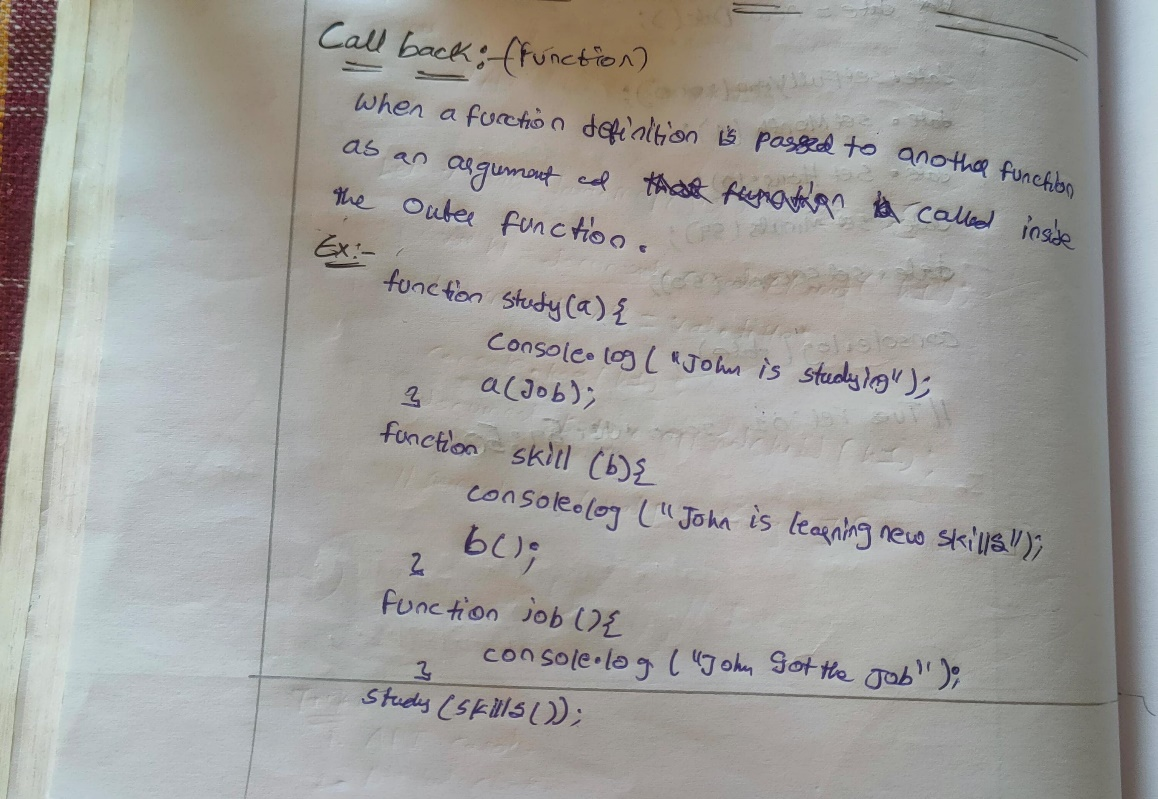 Call back:-(function)
When a function definition is passed to another function
as an argument ed that function is called inside
the outer function.
Ex:-
function study(a){
console.log("John is studying");
a(Job);
}
function skill (b){
console.log ("John is learning new skills");
b();
}
function job (){
console.log ("John Got the Job");
}
study (skills());